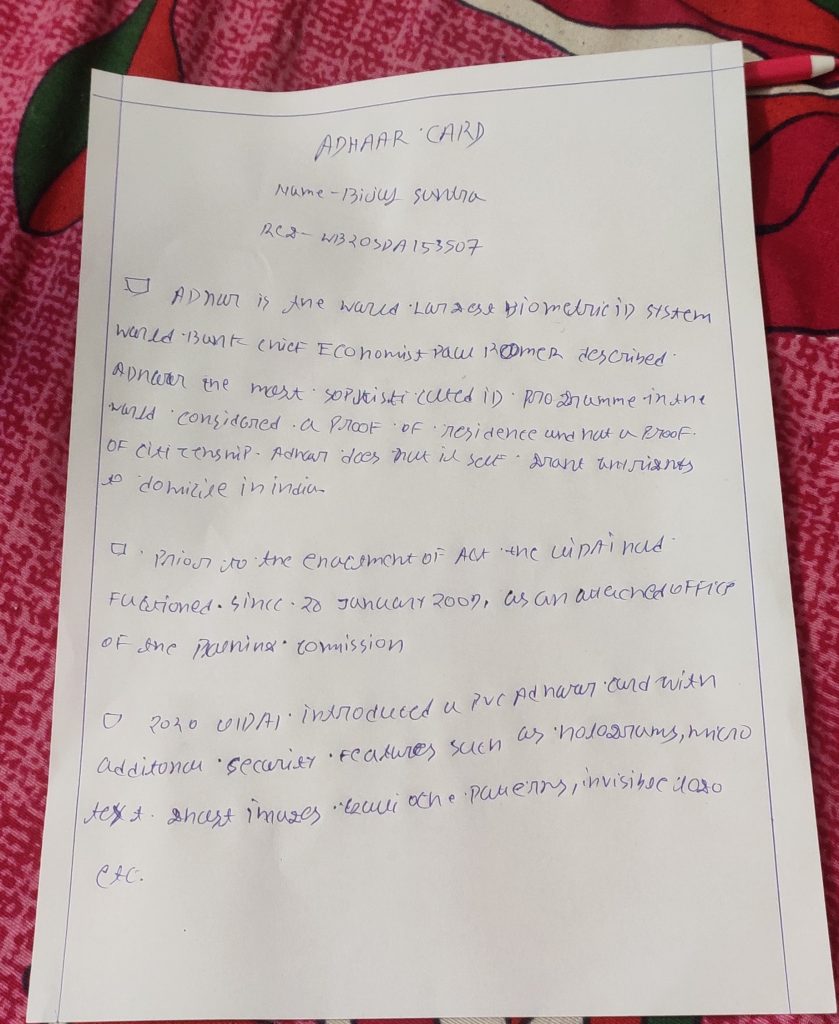 ADHAAR CARD
Name - Bijus Suntra
RC2 - WB20SDA153507
ADhaar is the world Largest Biometric ID system
world Bank chief Economist Paul Romer described
ADhaar the most sophisticated ID programme in the
world considered a Proof of residence and not a Proof
OF citizenship. Adhaar does not it self grant any rights
to domicile in india
Prior to the enactment of Act the UIDAI had
Fuctioned since 28 January 2009, as an attached office
OF the commission
2020 UIDAI introduced a PVC Adhaar card with
additonal security Features such as holograms, micro
text ghost images patterns, invisible logo
etc.